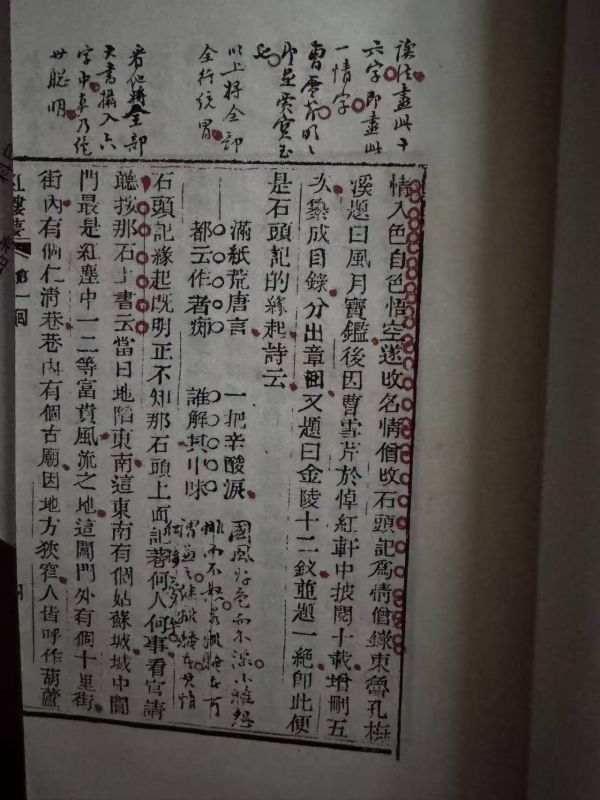 讀法盡此十
六字即盡此
一情字
曹雪芹即
即是賈寶玉
也
以上將全部
全行統冒
若他將全部
大書攝入六
字中真乃絕
世聰明
情入色自色悟空遂改名情僧改石頭記爲情僧錄東魯孔梅
溪題曰風月寶鑑後因曹雪芹於悼紅軒中披閱十載增刪五
次纂成目錄分出章囘又題曰金陵十二釵並題一絕卽此便
是石頭記的緣起詩云
滿紙荒唐言 一把辛酸淚
都云作者痴 誰解其中味
國風好色而不淫小雅怨
誹而不怒
石頭記緣起旣明正不知那石頭上面記著何人何事看官請
聽按那石上書云當日地陷東南這東南有個姑蘇城城中閶
門最是紅塵中一二等富貴風流之地這閶門外有個十里街
街內有個仁清巷巷內有個古廟因地方狹窄人皆呼作葫蘆
紅樓夢 第一囘